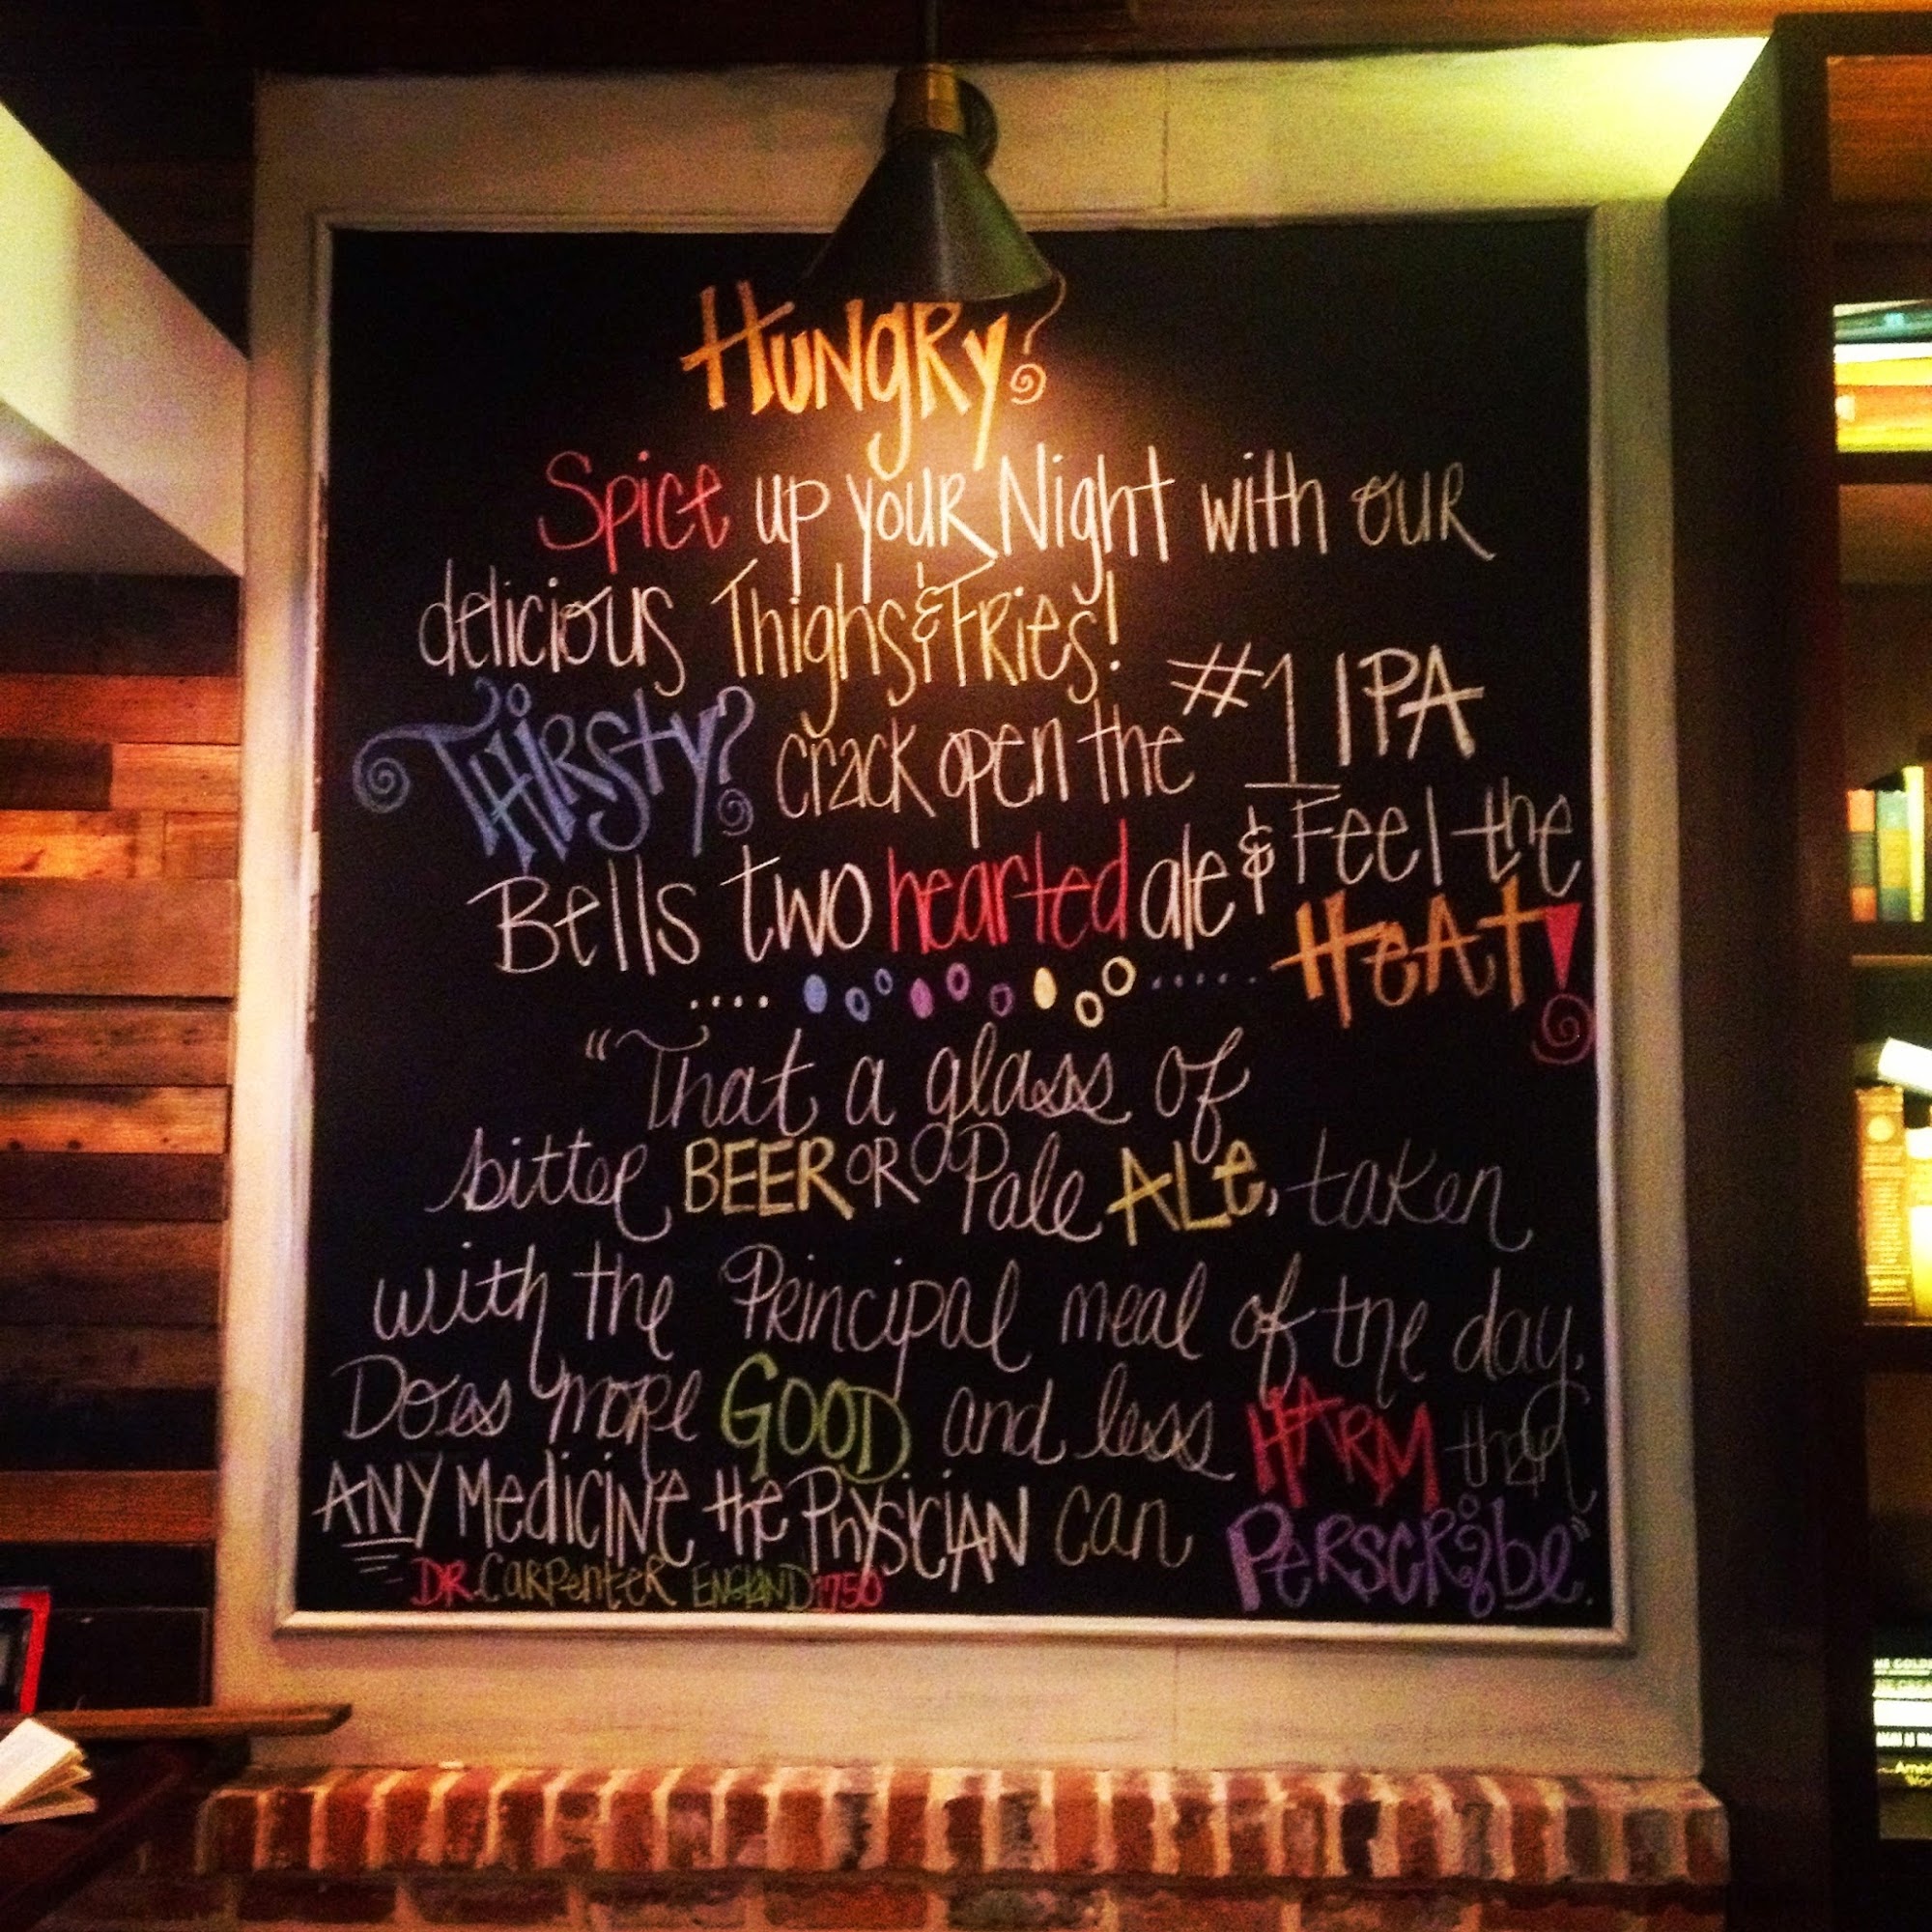 HUNgRy?
Spice up youR Night with ouR
delicious Thighs & FRies!
THiRsty? crack open the #1 IPA
Bells two hearted ale & Feel the
HeAt!
"That a glass of
bitter BEER OR Pale ALe, taken
with the Principal meal of the day.
Does more GOOD and less HARM than
ANY Medicine the Physician can PeRscribe".
DR. Carpenter ENGLAND 1750